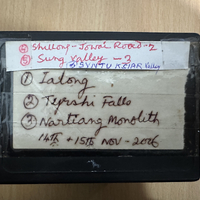 ④ Shillong-Jowai Road-2
⑤ Sung Valley - 3
⑥ SYNTU KSIAR Valley
① Ialong
② Tyrshi Falls
③ Nartiang Monolith
14th + 15th NOV - 2006